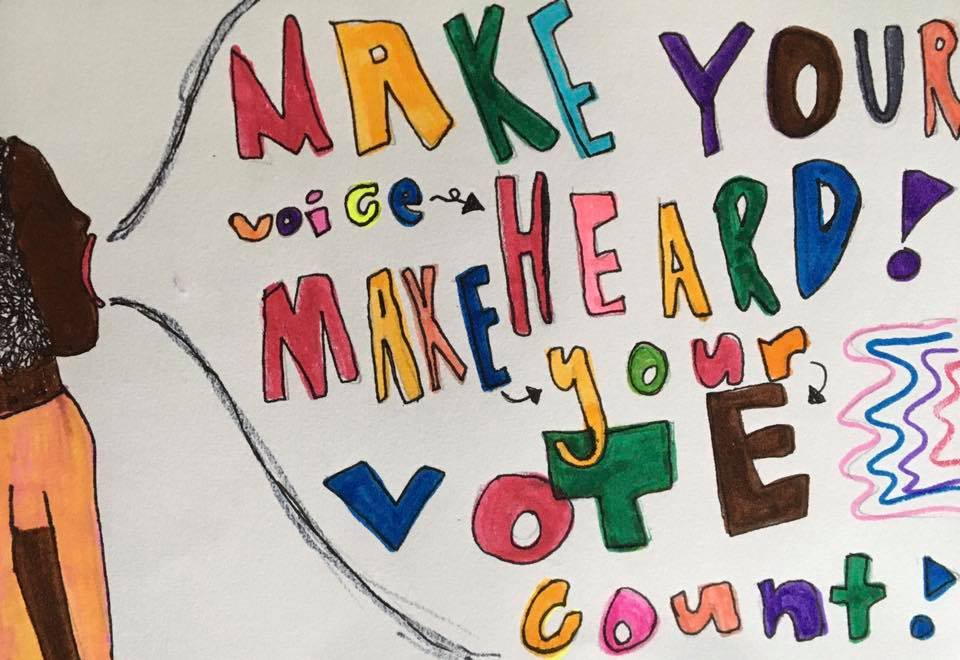 MAKE YOUR
voice HEARD!
MAKE your
VOTE
count!